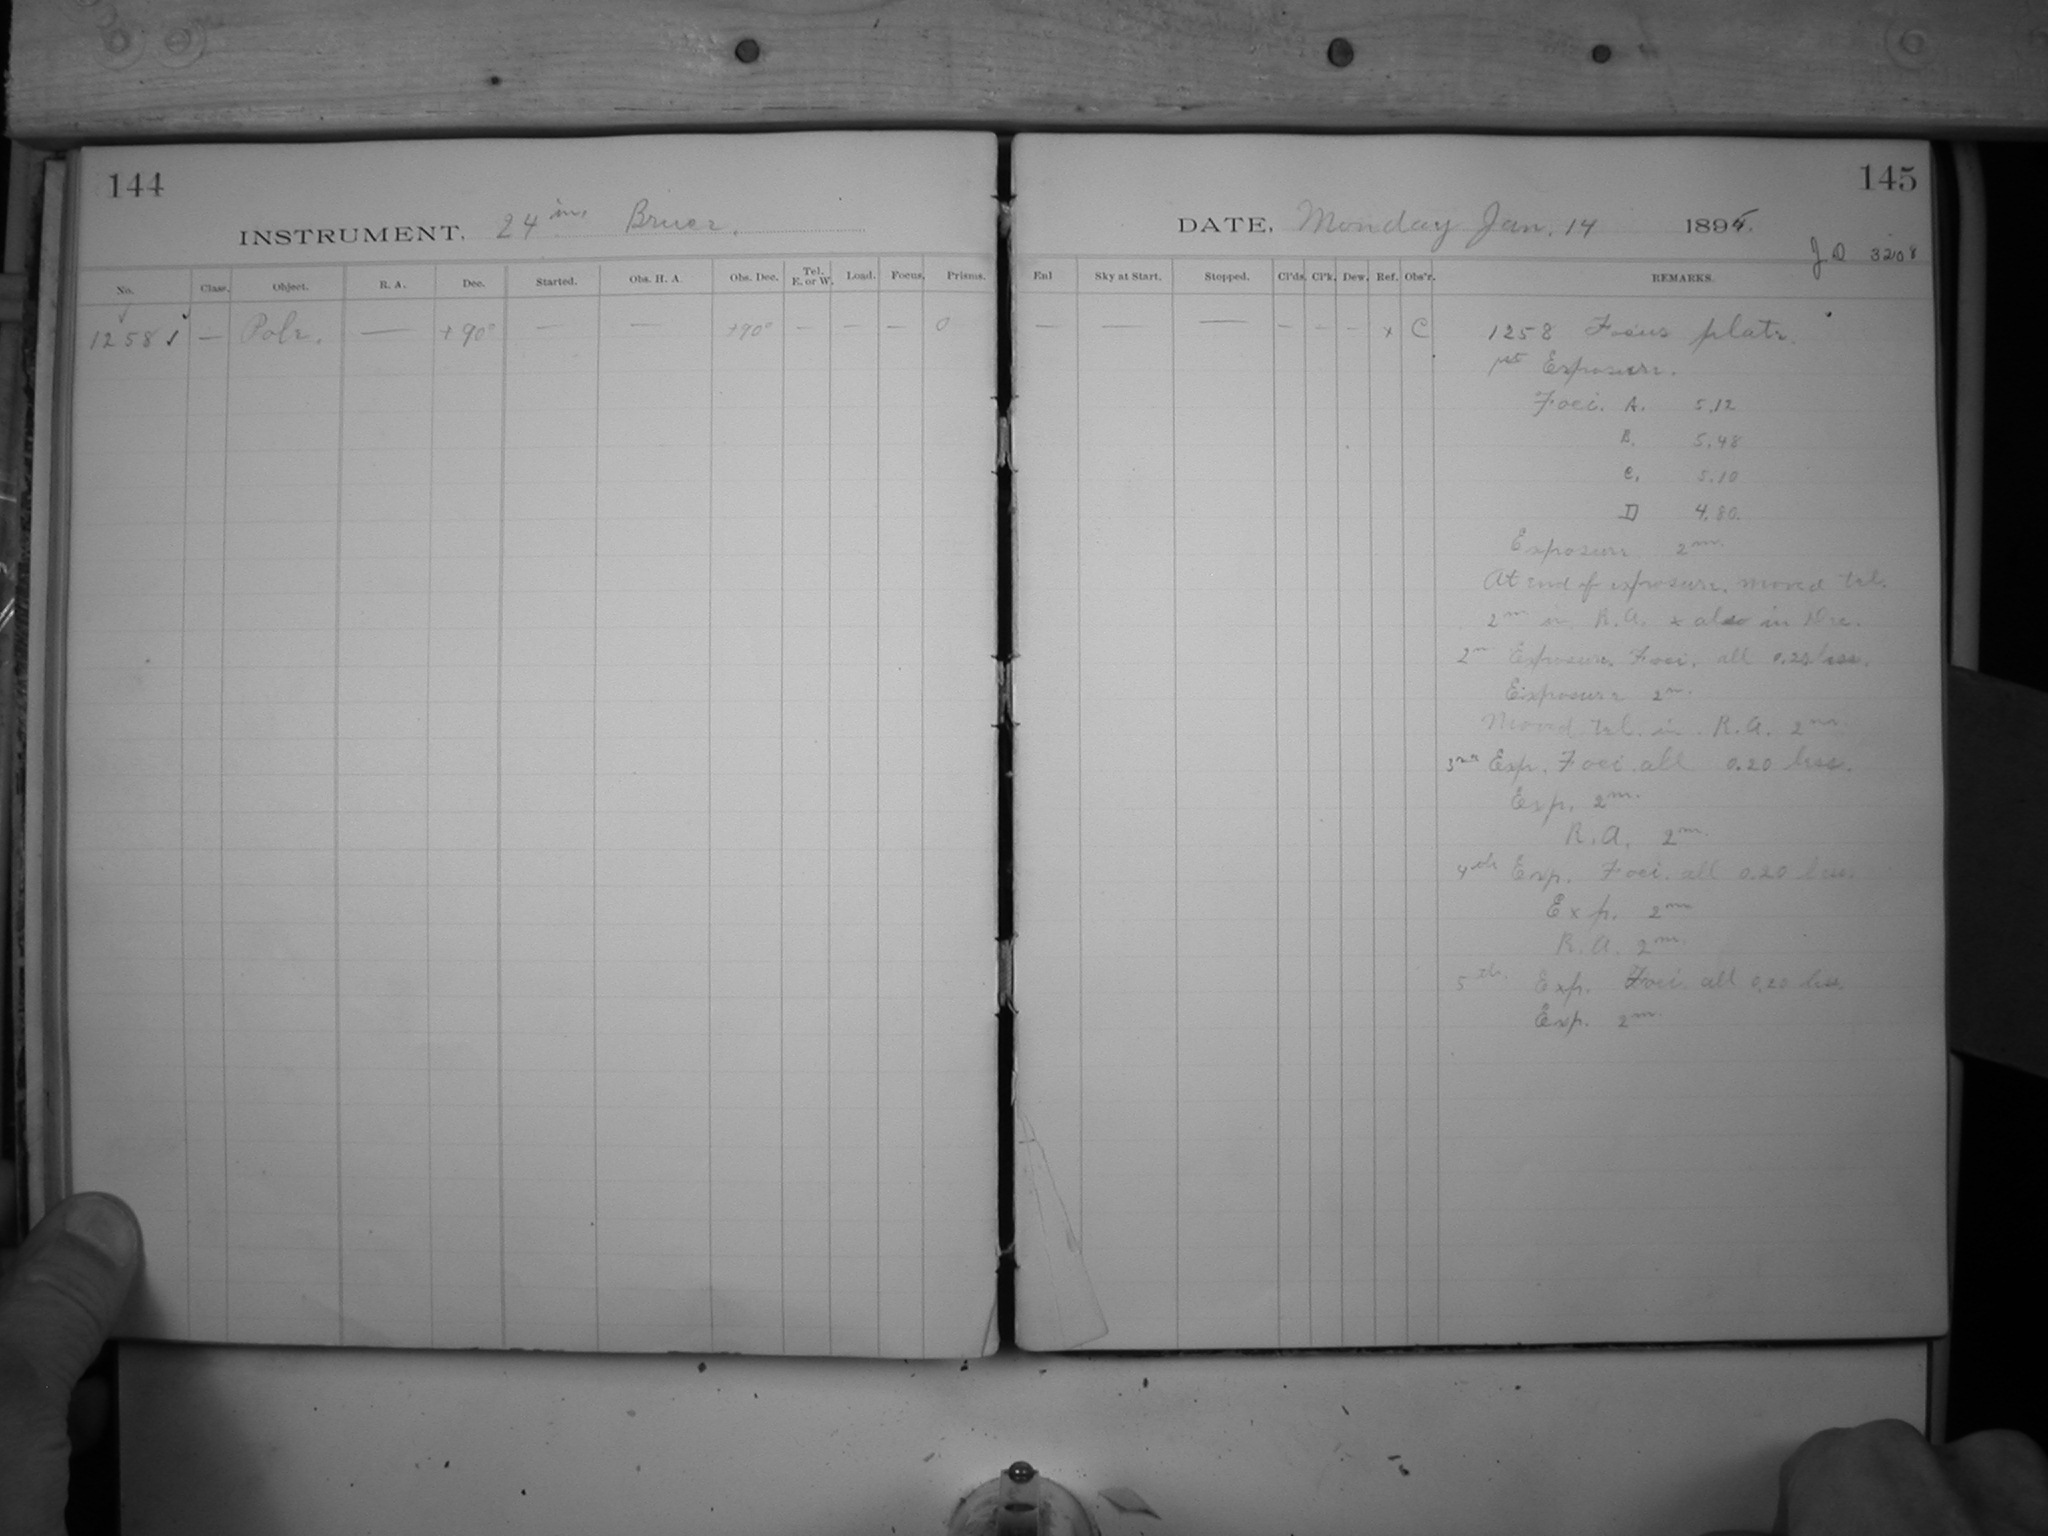 144
INSTRUMENT, 24 in. Bruce.
No. Class. Object. R. A. Dec. Started. Obs. H. A. Obs. Dec. Tel. E. or W. Load. Focus. Prisms.
1258 ✓ — Pole. — +90° — — +90° — — — 0
145
DATE, Monday Jan. 14 1895.
J D 3208
Enl Sky at Start. Stopped. Cl'ds. Cl'k. Dew. Ref. Obs'r. REMARKS.
— — — — — — x C 1258 Focus plate.
1st Exposure.
Foci. A. 5.12
B. 5.48
C. 5.10
D 4.80.
Exposure 2m.
At end of exposure, moved tel.
2m in R.A. & also in Dec.
2n Exposure. Foci. all 0.20 less.
Exposure 2m.
Moved tel. in R.A. 2m.
3rd Exp. Foci all 0.20 less.
Exp. 2m.
R.A. 2m.
4th Exp. Foci. all 0.20 less
Exp. 2m
R.A. 2m.
5th. Exp. Foci all 0.20 less.
Exp. 2m.